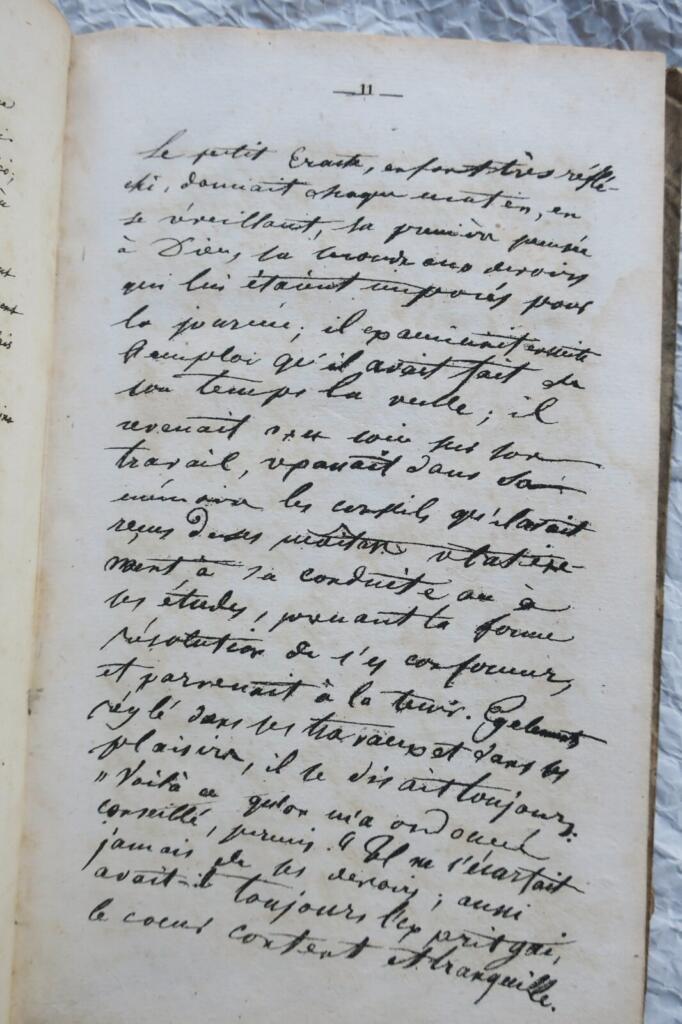 — 11 —
Le petit Eraste, enfant très réflé-
chi, donnait chaque matin, en
se éveillant, sa première pensée
à Dieu, la seconde aux devoirs
qui lui étaient imposés pour
la journée; il examinait ensuite
l'emploi qu'il avait fait de
son temps la veille; il
revenait avec soin sur son
travail, repassait dans sa
mémoire les conseils qu'il avait
reçus de ses maîtres relative-
ment, à sa conduite ou à
ses études, prenant la ferme
résolution de s'y conformer,
et parvenait à la tenir. Egalement
réglé dans ses travaux et dans ses
plaisirs, il se disait toujours:
"Voilà ce qu'on m'a ordonné
conseillé, permis." Il ne s'écartait
jamais de ses devoirs; aussi
avait-il toujours l'esprit gai,
le coeur content et tranquille.